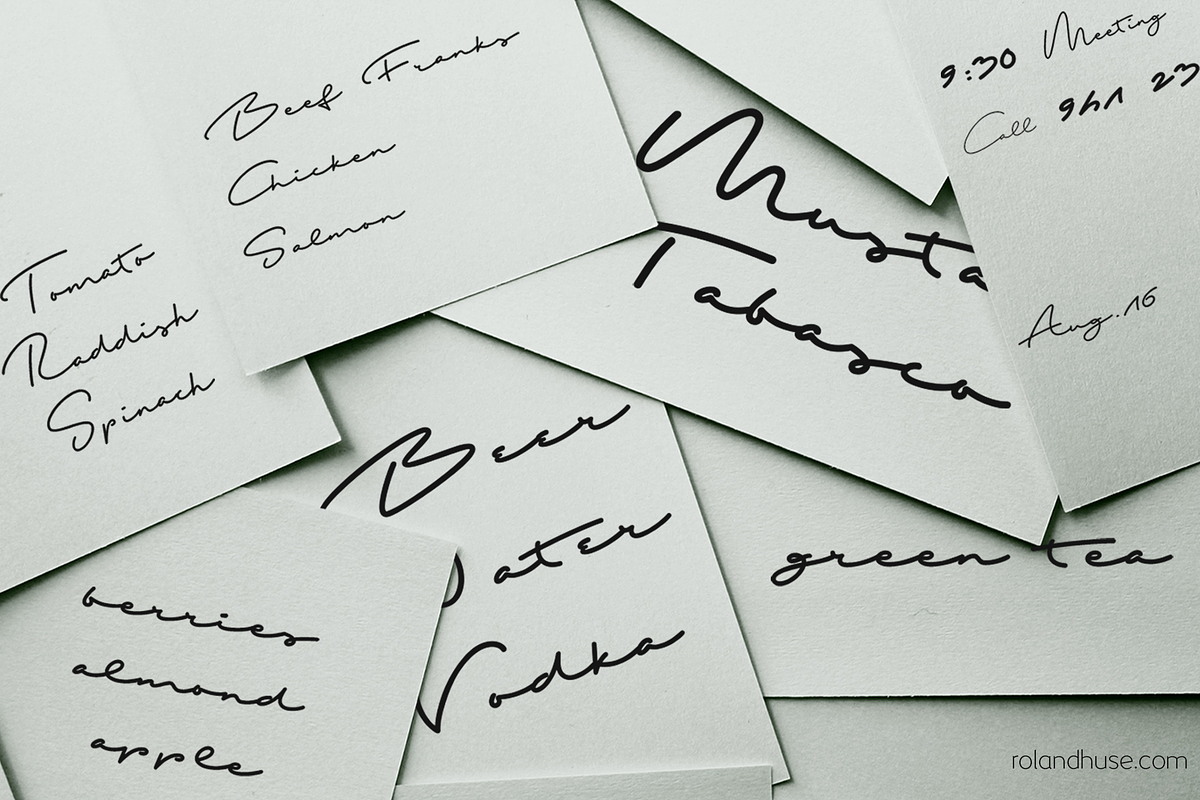 Beef Franks
Chicken
Salmon
Tomato
Raddish
Spinach
Musta
Tabasco
9:30 Meeting
Call 911 23
Aug.16
Beer
ater
Vodka
green tea
berries
almond
apple
rolandhuse.com